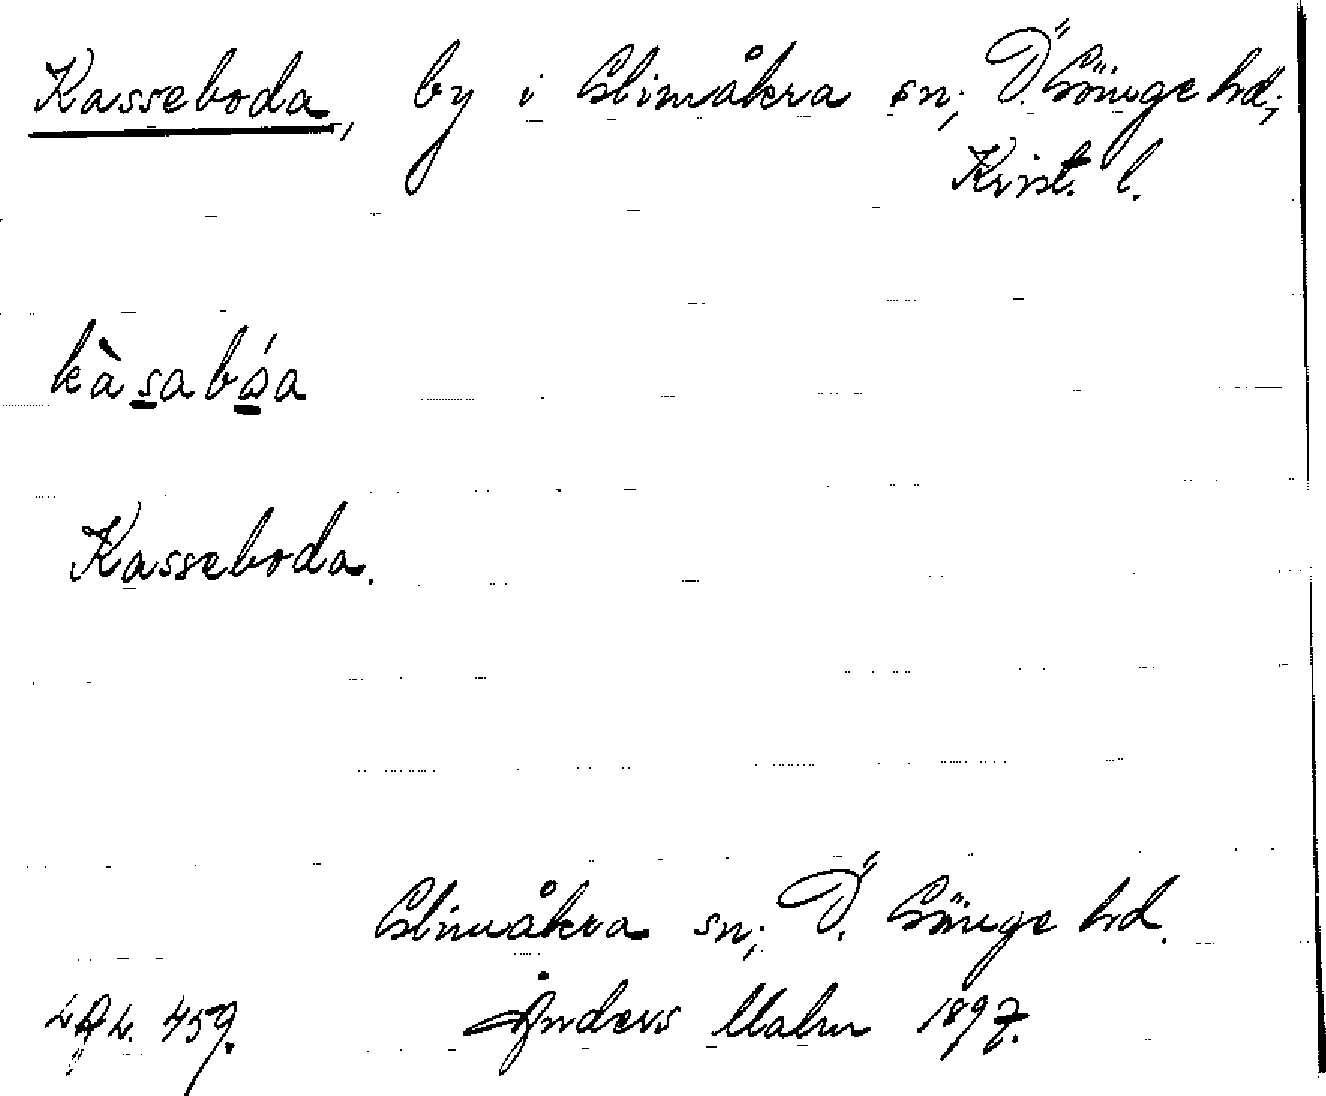 Kasseboda, by i Glimåkra sn; Ö. Göinge hd;
Krist. l.
kàsabóa
Kasseboda.
Glimåkra sn; Ö. Göinge hd.
459. Anders Malm 1897.